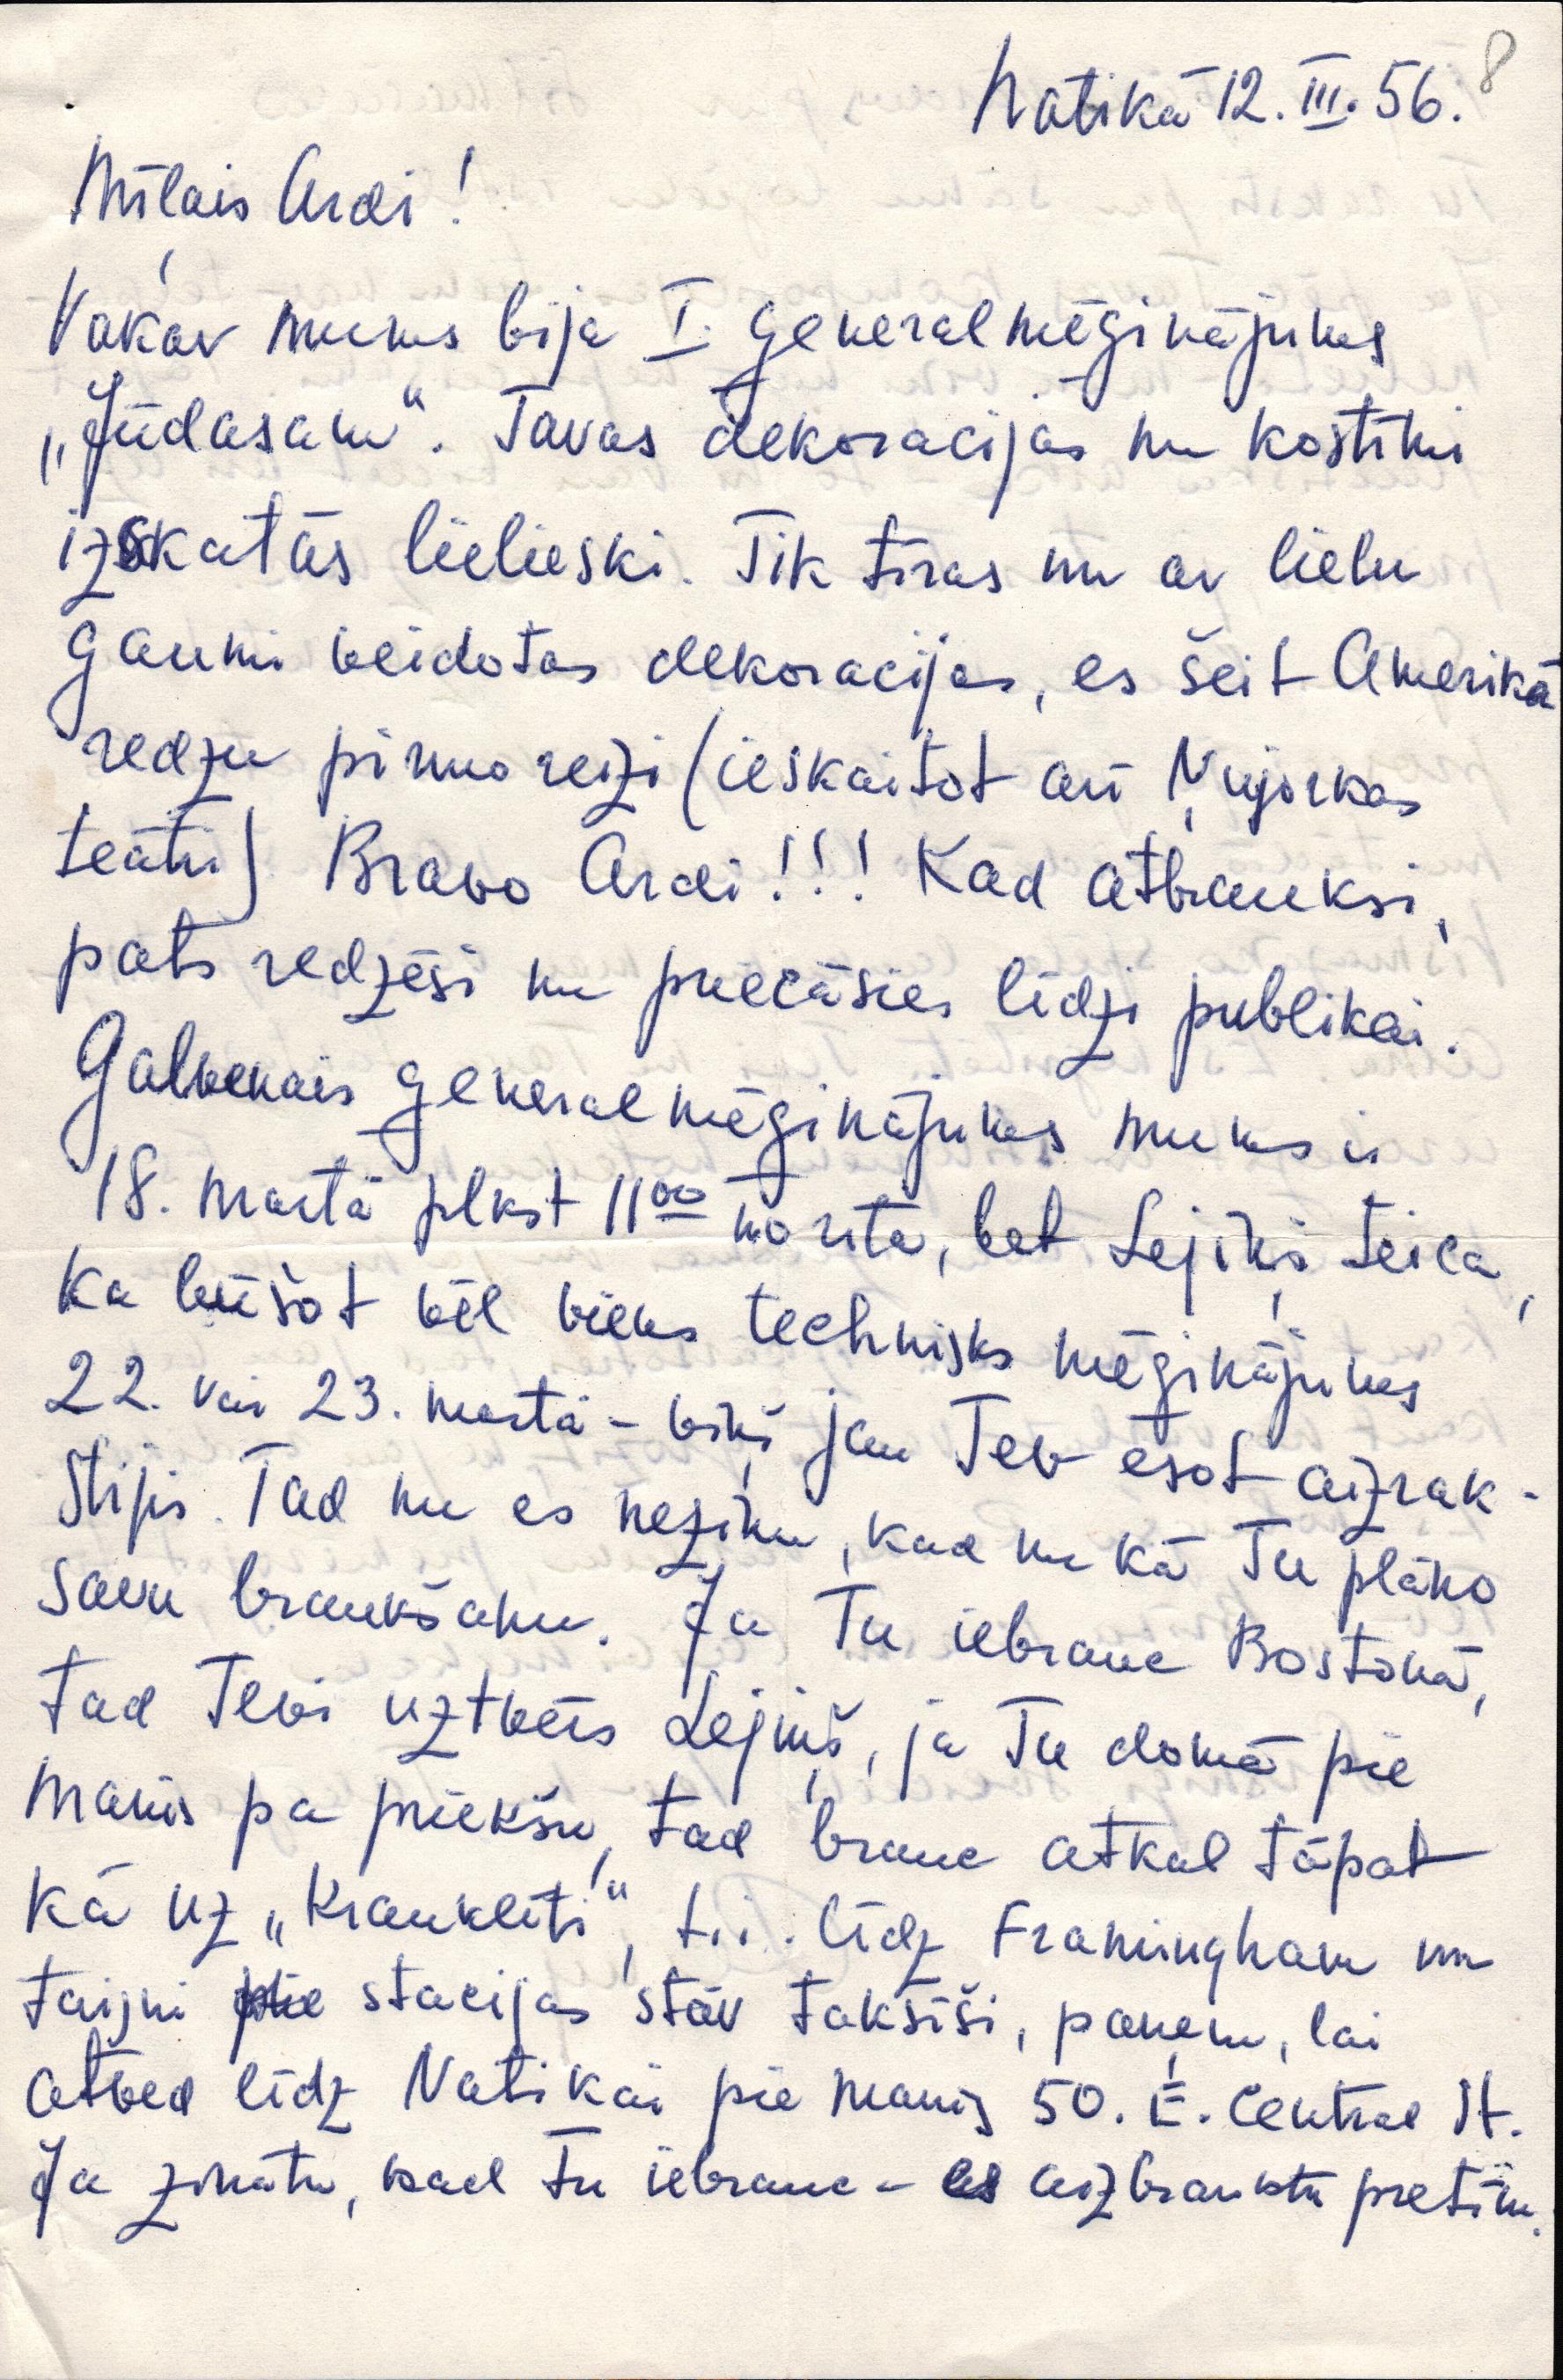 Natikā 12. III. 56. 8
Mīlais Ardi!
Vakar mums bija I. generalmēģinājums
„Jūdasam". Tavas dekoracijas un kostīmi
izskatās lieliski. Tik tīras un ar lielu
gaumi veidotas dekoracijas, es šeit Amerikā
redzu pirmo reizi (ieskaitot arī Ņujorkas
teātri) Bravo Ardi!!! Kad atbrauksi,
pats redzēsi un priecāsies līdzi publikai.
Galvenais generalmēģinājums mums ir
18. martā plkst 11⁰⁰ no rīta, bet Lejiņš teica,
ka būšot vēl viens technisks mēģinājums
22. vai 23. martā - viņš jau Tev esot aizrak-
stijis. Tad nu es nezinu, kad un kā Tu plāno
savu braukšanu. Ja Tu iebrauc Bostonā,
tad Tevi uztvērs Lejiņš, ja Tu domā pie
manis pa priekšu, tad brauc atkal tāpat
kā uz „Kraukliti", t.i. līdz Framingham un
taisni pie stacijas stāv taksīši, paņem, lai
atved līdz Natikai pie manis 50. E. Central St.
Ja zinātu, kad Tu iebrauc - es aizbrauktu pretīm.